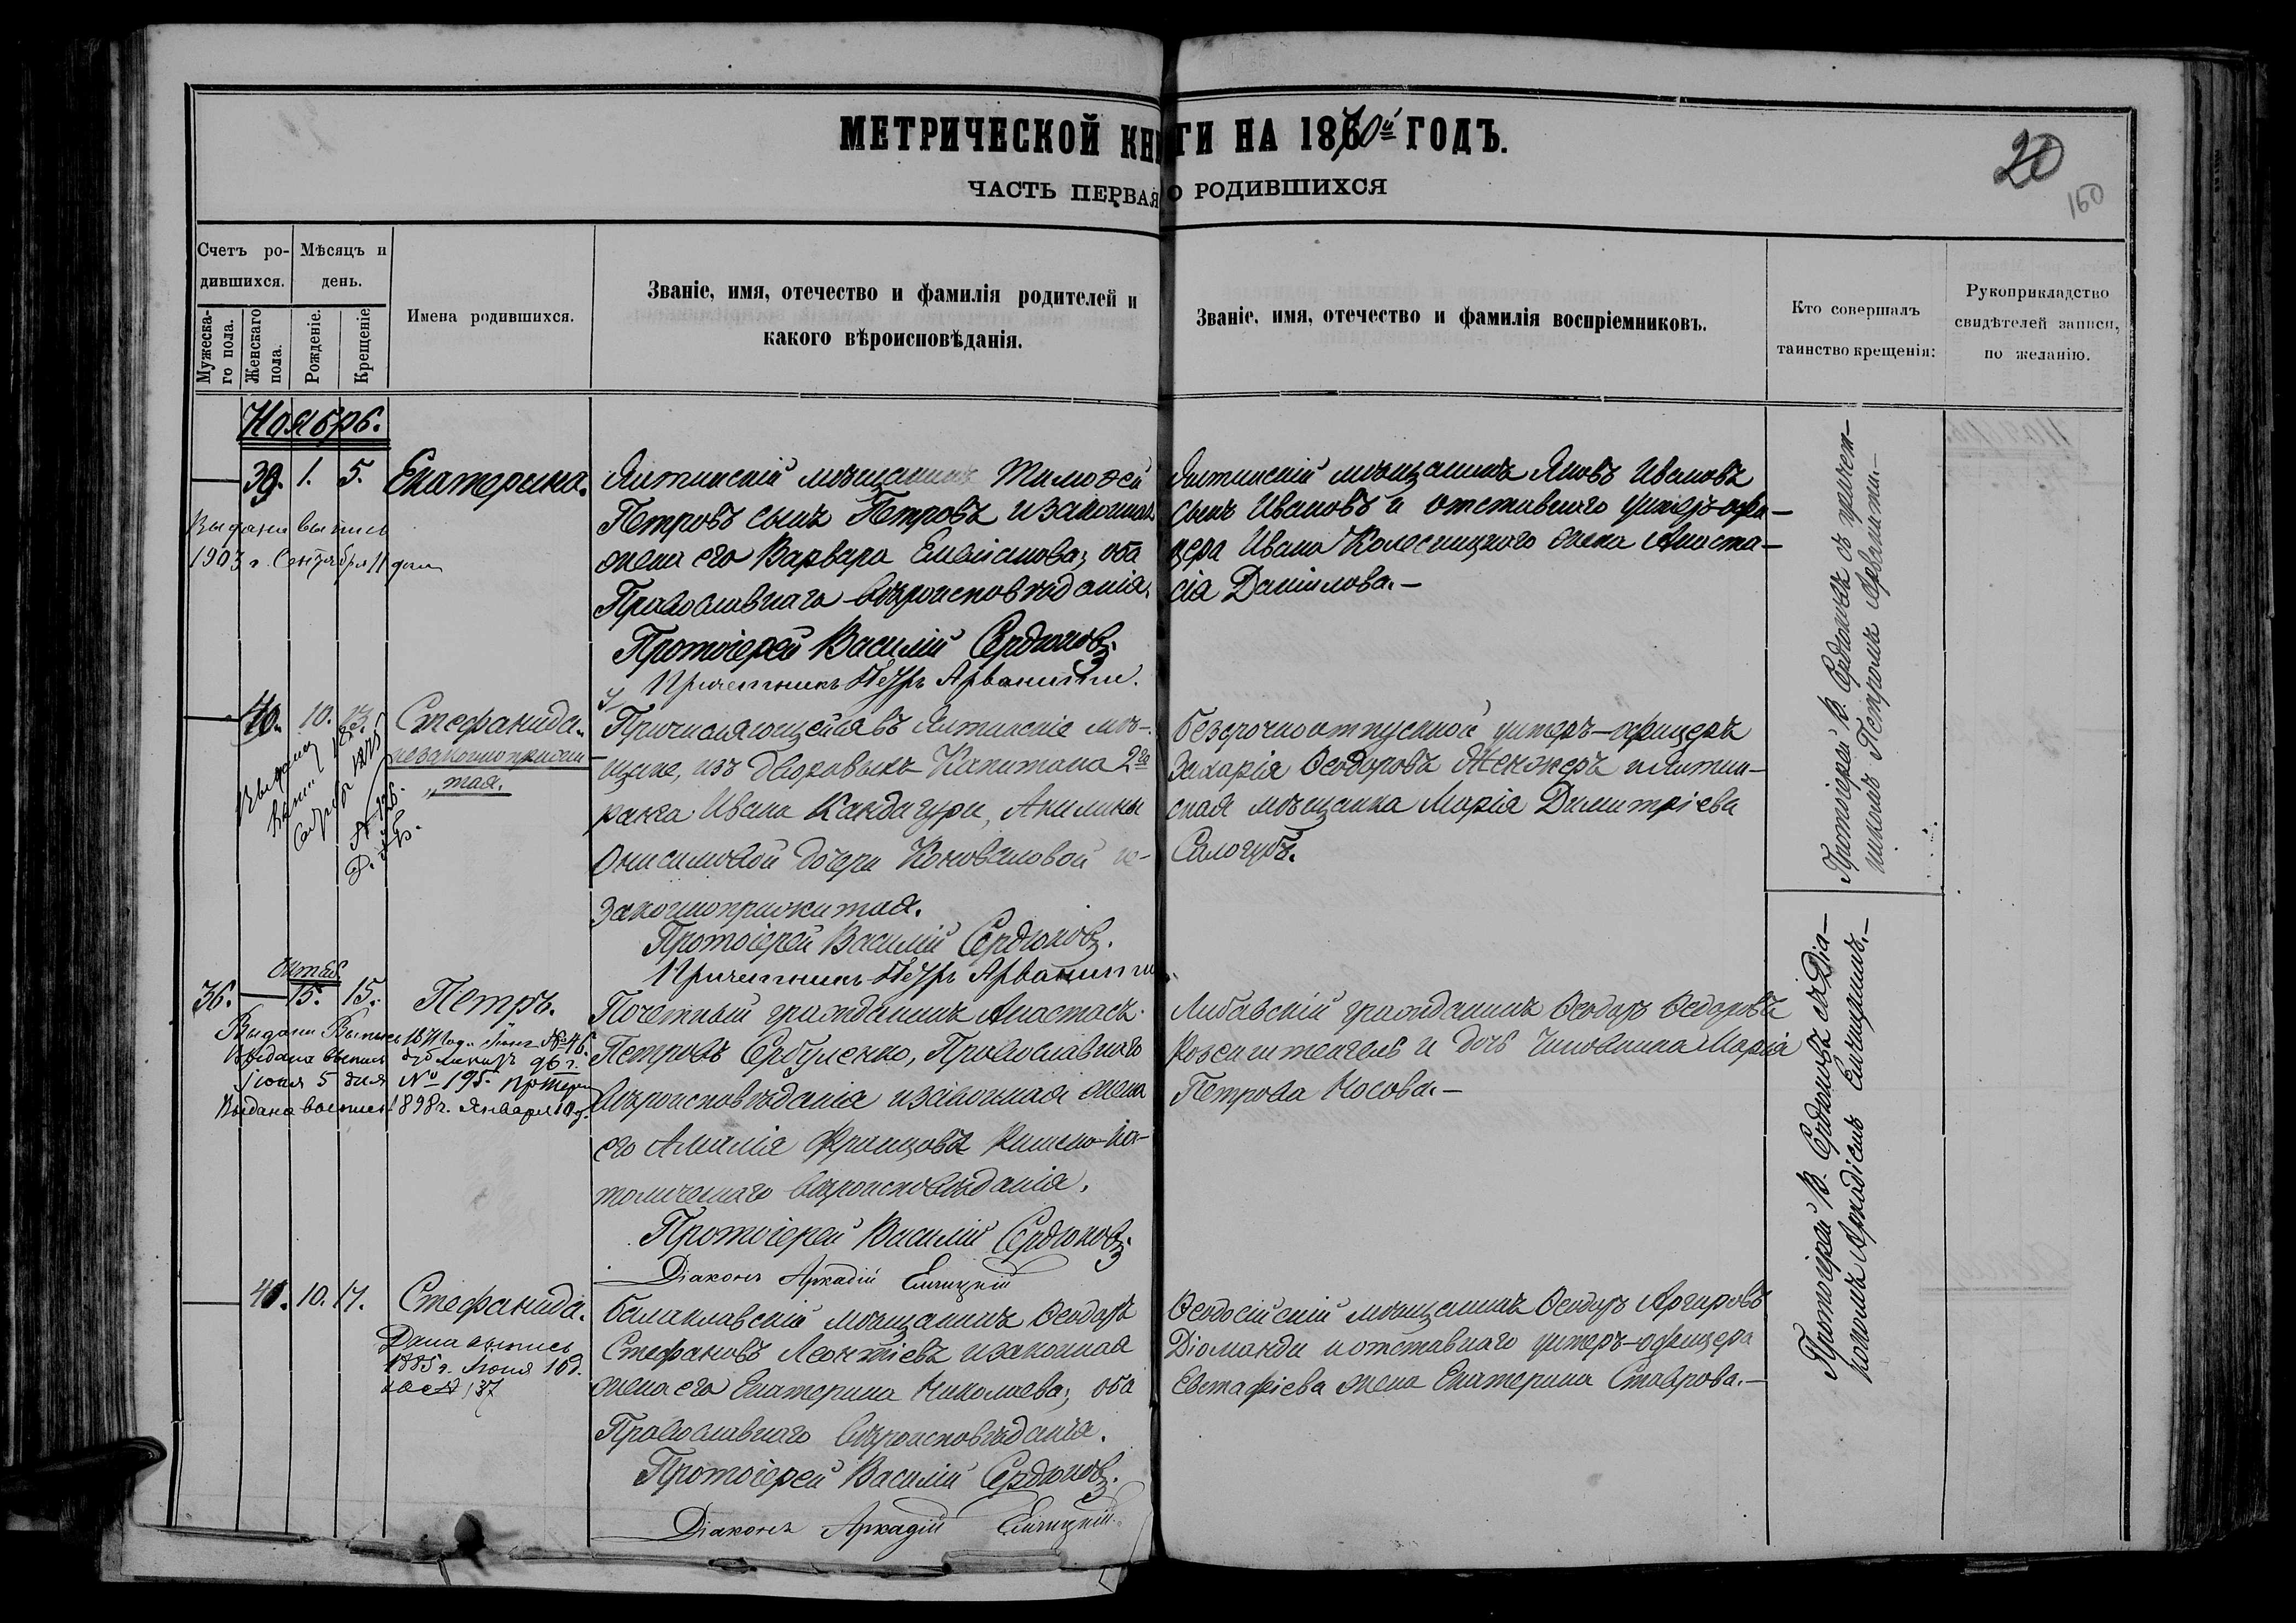 МЕТРИЧЕСКОЙ КНИГИ НА 1870й ГОДЪ.
ЧАСТЬ ПЕРВАЯ О РОДИВШИХСЯ
20
160
Счетъ ро-
дившихся.
Мѣсяцъ и
день.
Мужеска-
го пола.
Женскаго
пола.
Рожденіе.
Крещеніе
Имена родившихся.
Званіе, имя, отечество и фамилія родителей и
какого вѣроисповѣданія.
Званіе, имя, отечество и фамилія воспріемниковъ.
Кто совершалъ
таинство крещенія:
Рукоприкладство
свидѣтелей записи,
по желанію.
Ноябрь.
39. 1. 5. Екатерина.
Выдана выпись
1903 г. Сентября 11 дня
Ялтинскій мѣщанинъ Тимофей
Петровъ сынъ Петровъ и законная
жена его Варвара Емельянова; оба
Православнаго вѣроисповѣданія.
Протоіерей Василій Сердюковъ.
Причетникъ Петръ Арванитти.
Ялтинскій мѣщанинъ Яковъ Ивановъ
сынъ Ивановъ и отставнаго унтеръ-офи-
цера Ивана Колесницкаго жена Анаста-
сія Даніилова.-
Протоіерей В. Сердюковъ съ причет-
никомъ Петромъ Арванитти.-
40. 10. 13. Стефанида.
незаконноприжи
тая.
1875
Причисляющейся въ Ялтинскіе мѣ-
щане, изъ дворовыхъ Капитана 2го
ранга Ивана Кандагури, Акилины
Онисимовой дочери Коноваловой не-
законноприжитая.
Протоіерей Василій Сердюковъ.
Причетникъ Петръ Арванитти
безсрочноотпускной унтеръ-офицеръ
Захарія Ѳеодоровъ и Ялтин-
ская мѣщанка Марія Димитріева
Сологубъ.
Октяб.
36. 15. 15. Петръ.
Выдана Выпись 1871 год. № 46.
Выдана выпись 96 г.
Іюня 5 дня № 195.
Выдана выпись 1898 г. Января 10 д.
Почетный гражданинъ Анастасъ
Петровъ Сербуленко, Православнаго
вѣроисповѣданія и законная жена
его Амалія Францовъ Римско-ка-
толическаго вѣроисповѣданія.
Протоіерей Василій Сердюковъ.
Діаконъ Аркадій Ельчицкій
Либавскій гражданинъ Ѳеодоръ Ѳедоровъ
и дочь Чиновника Марія
Петрова Носова.-
Протоіерей В. Сердюковъ съ Діа-
кономъ Аркадіемъ Ельчицкимъ.-
41. 10. 17. Стефанида.
Дана выпись
1885 г. Іюня 10 д.
137
Балаклавскій мѣщанинъ Ѳеодоръ
Стефановъ Леонтіевъ и законная
жена его Екатерина Николаева; оба
Православнаго вѣроисповѣданія.
Протоіерей Василій Сердюковъ.
Діаконъ Аркадій Ельчицкій
Ѳеодосійскій мѣщанинъ Ѳеодоръ Аргировъ
Діоманди и отставнаго унтеръ-офицера
Евстафіева жена Екатерина Ставрова.-